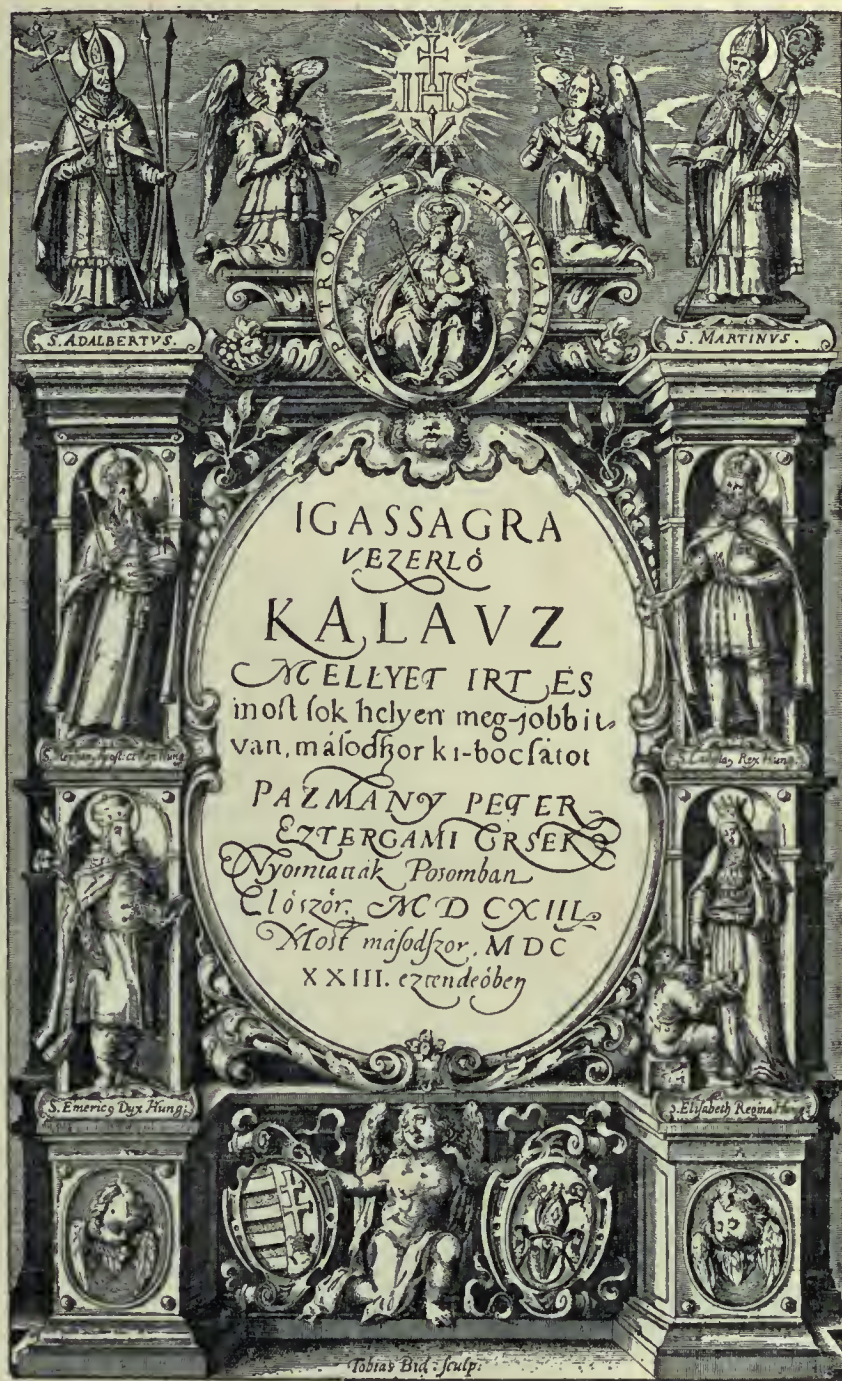 IHS
PATRONA HVNGARIÆ
S. ADALBERTVS.
S. MARTINVS.
IGASSAGRA
VEZERLÖ
KALAVZ
MELLYET IRT ES
moſt ſok helyen meg-jobbit
van, máſodſzor ki-bocſátot
PAZMANY PETER
EZTERGAMI ERSEK
Nyomtatták Posomban
Elöször. MDCXIII.
Moſt máſodſzor. MDC
XXIII. eztendeóben
S. Rex Hung.
S. Emericꝯ Dux Hung:
S. Eliſabeth Regina Hung:
Tobias Bid: ſculp: